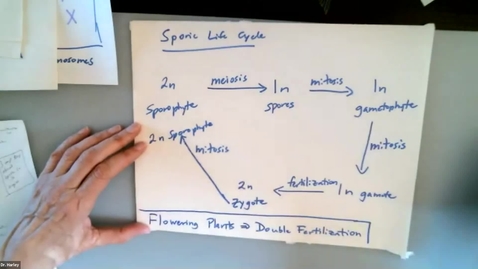 Sporic Life Cycle
2n meiosis 1n mitosis 1n
Sporophyte spores gametophyte
2n Sporophyte
mitosis mitosis
2n fertilization 1n gamete
zygote
Flowering Plants Double Fertilization
nosomes
X
Dr. Harley